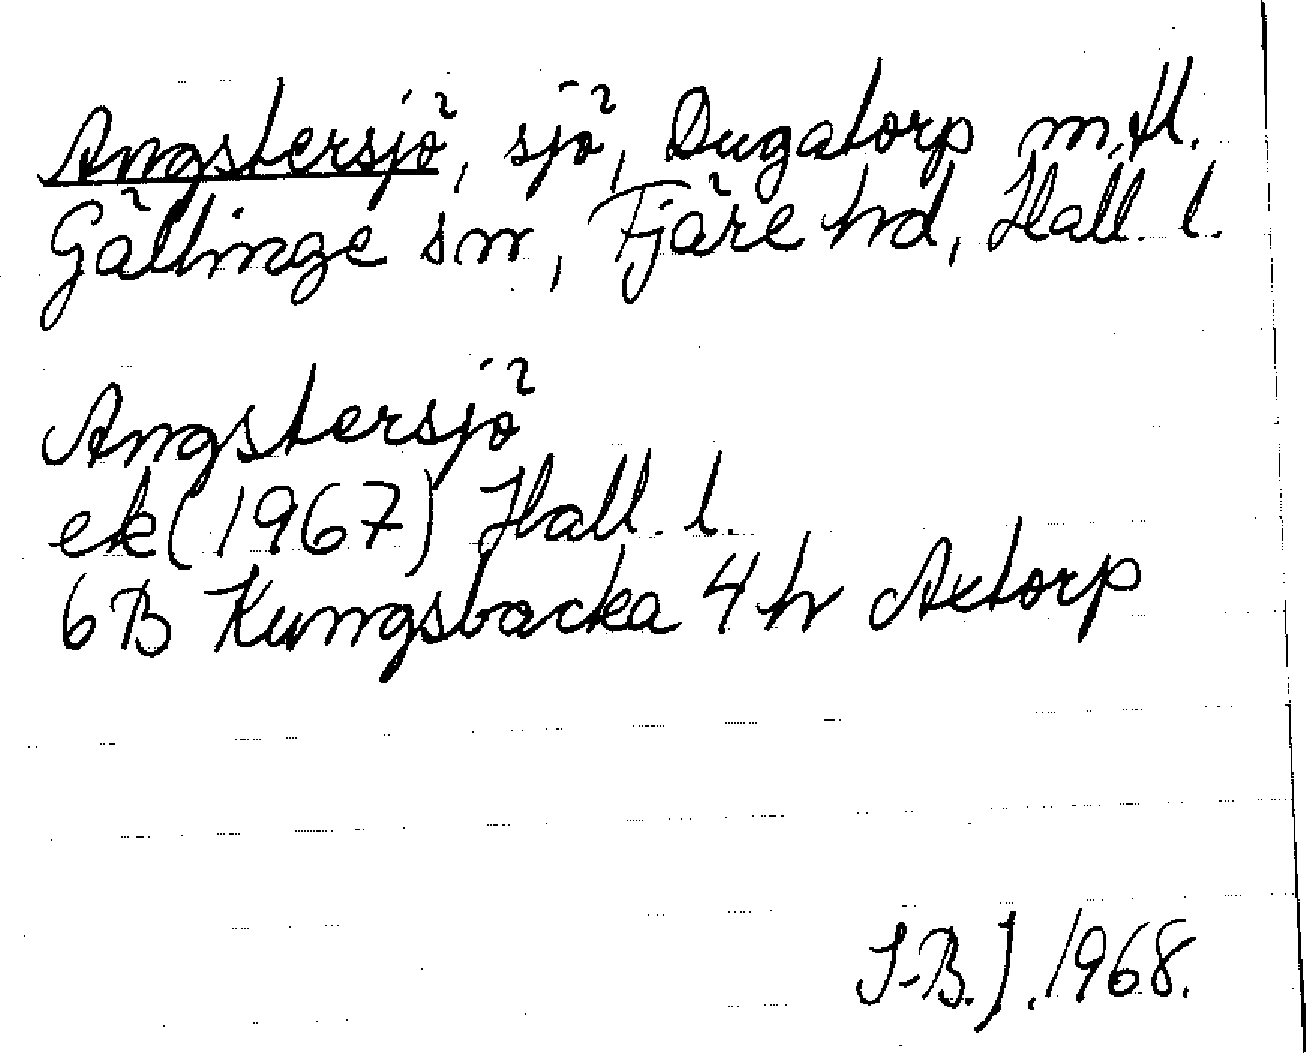 Angstersjö, sjö, Dugatorp m.fl.
Gällinge sn, Fjäre hd, Hall. l.
Angstersjö
ek (1967) Hall. l.
6B Kungsbacka 4 h Axtorp
S-B.J. 1968.